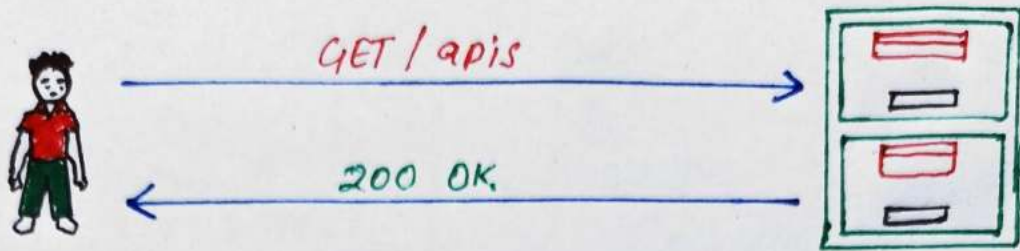 GET / apis
200 OK.